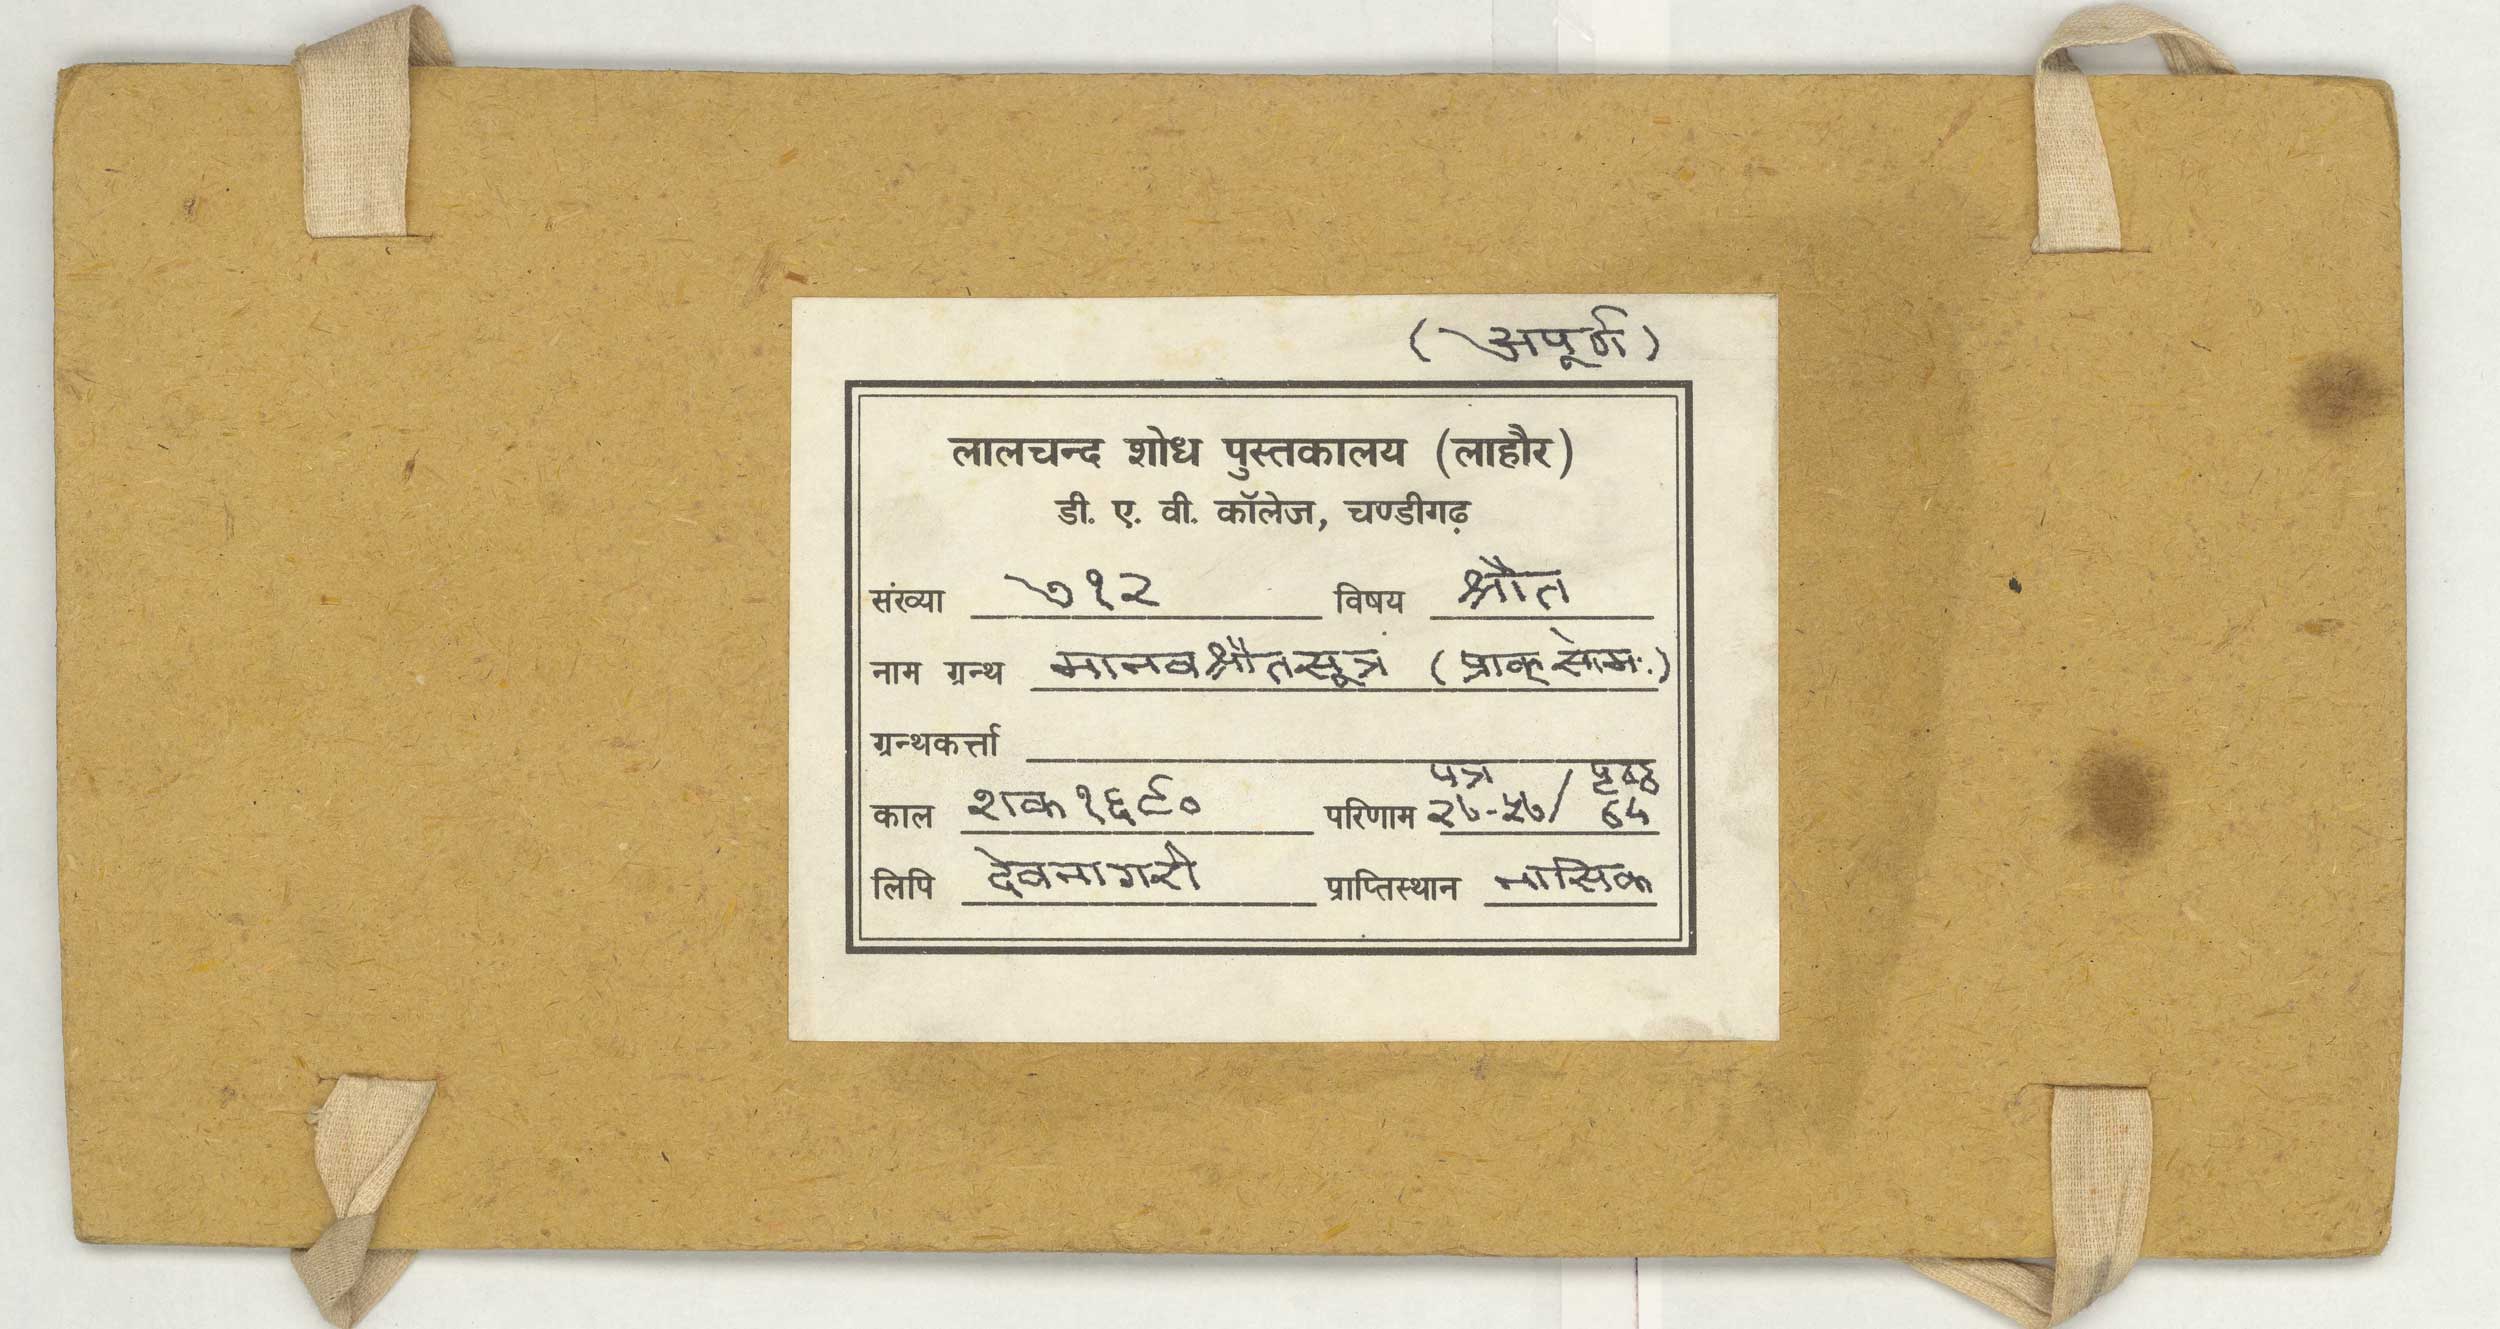 (अपूर्ण)
लालचन्द शोध पुस्तकालय (लाहौर)
डी. ए. वी. कॉलेज, चण्डीगढ़
संख्या ७१२ विषय श्रौत
नाम ग्रन्थ मानवश्रौतसूत्र (प्राक्सोमः)
ग्रन्थकर्त्ता
पत्र / पृष्ठ
काल शक १६९० परिणाम २७-५७/
लिपि देवनागरी प्राप्तिस्थान नासिक